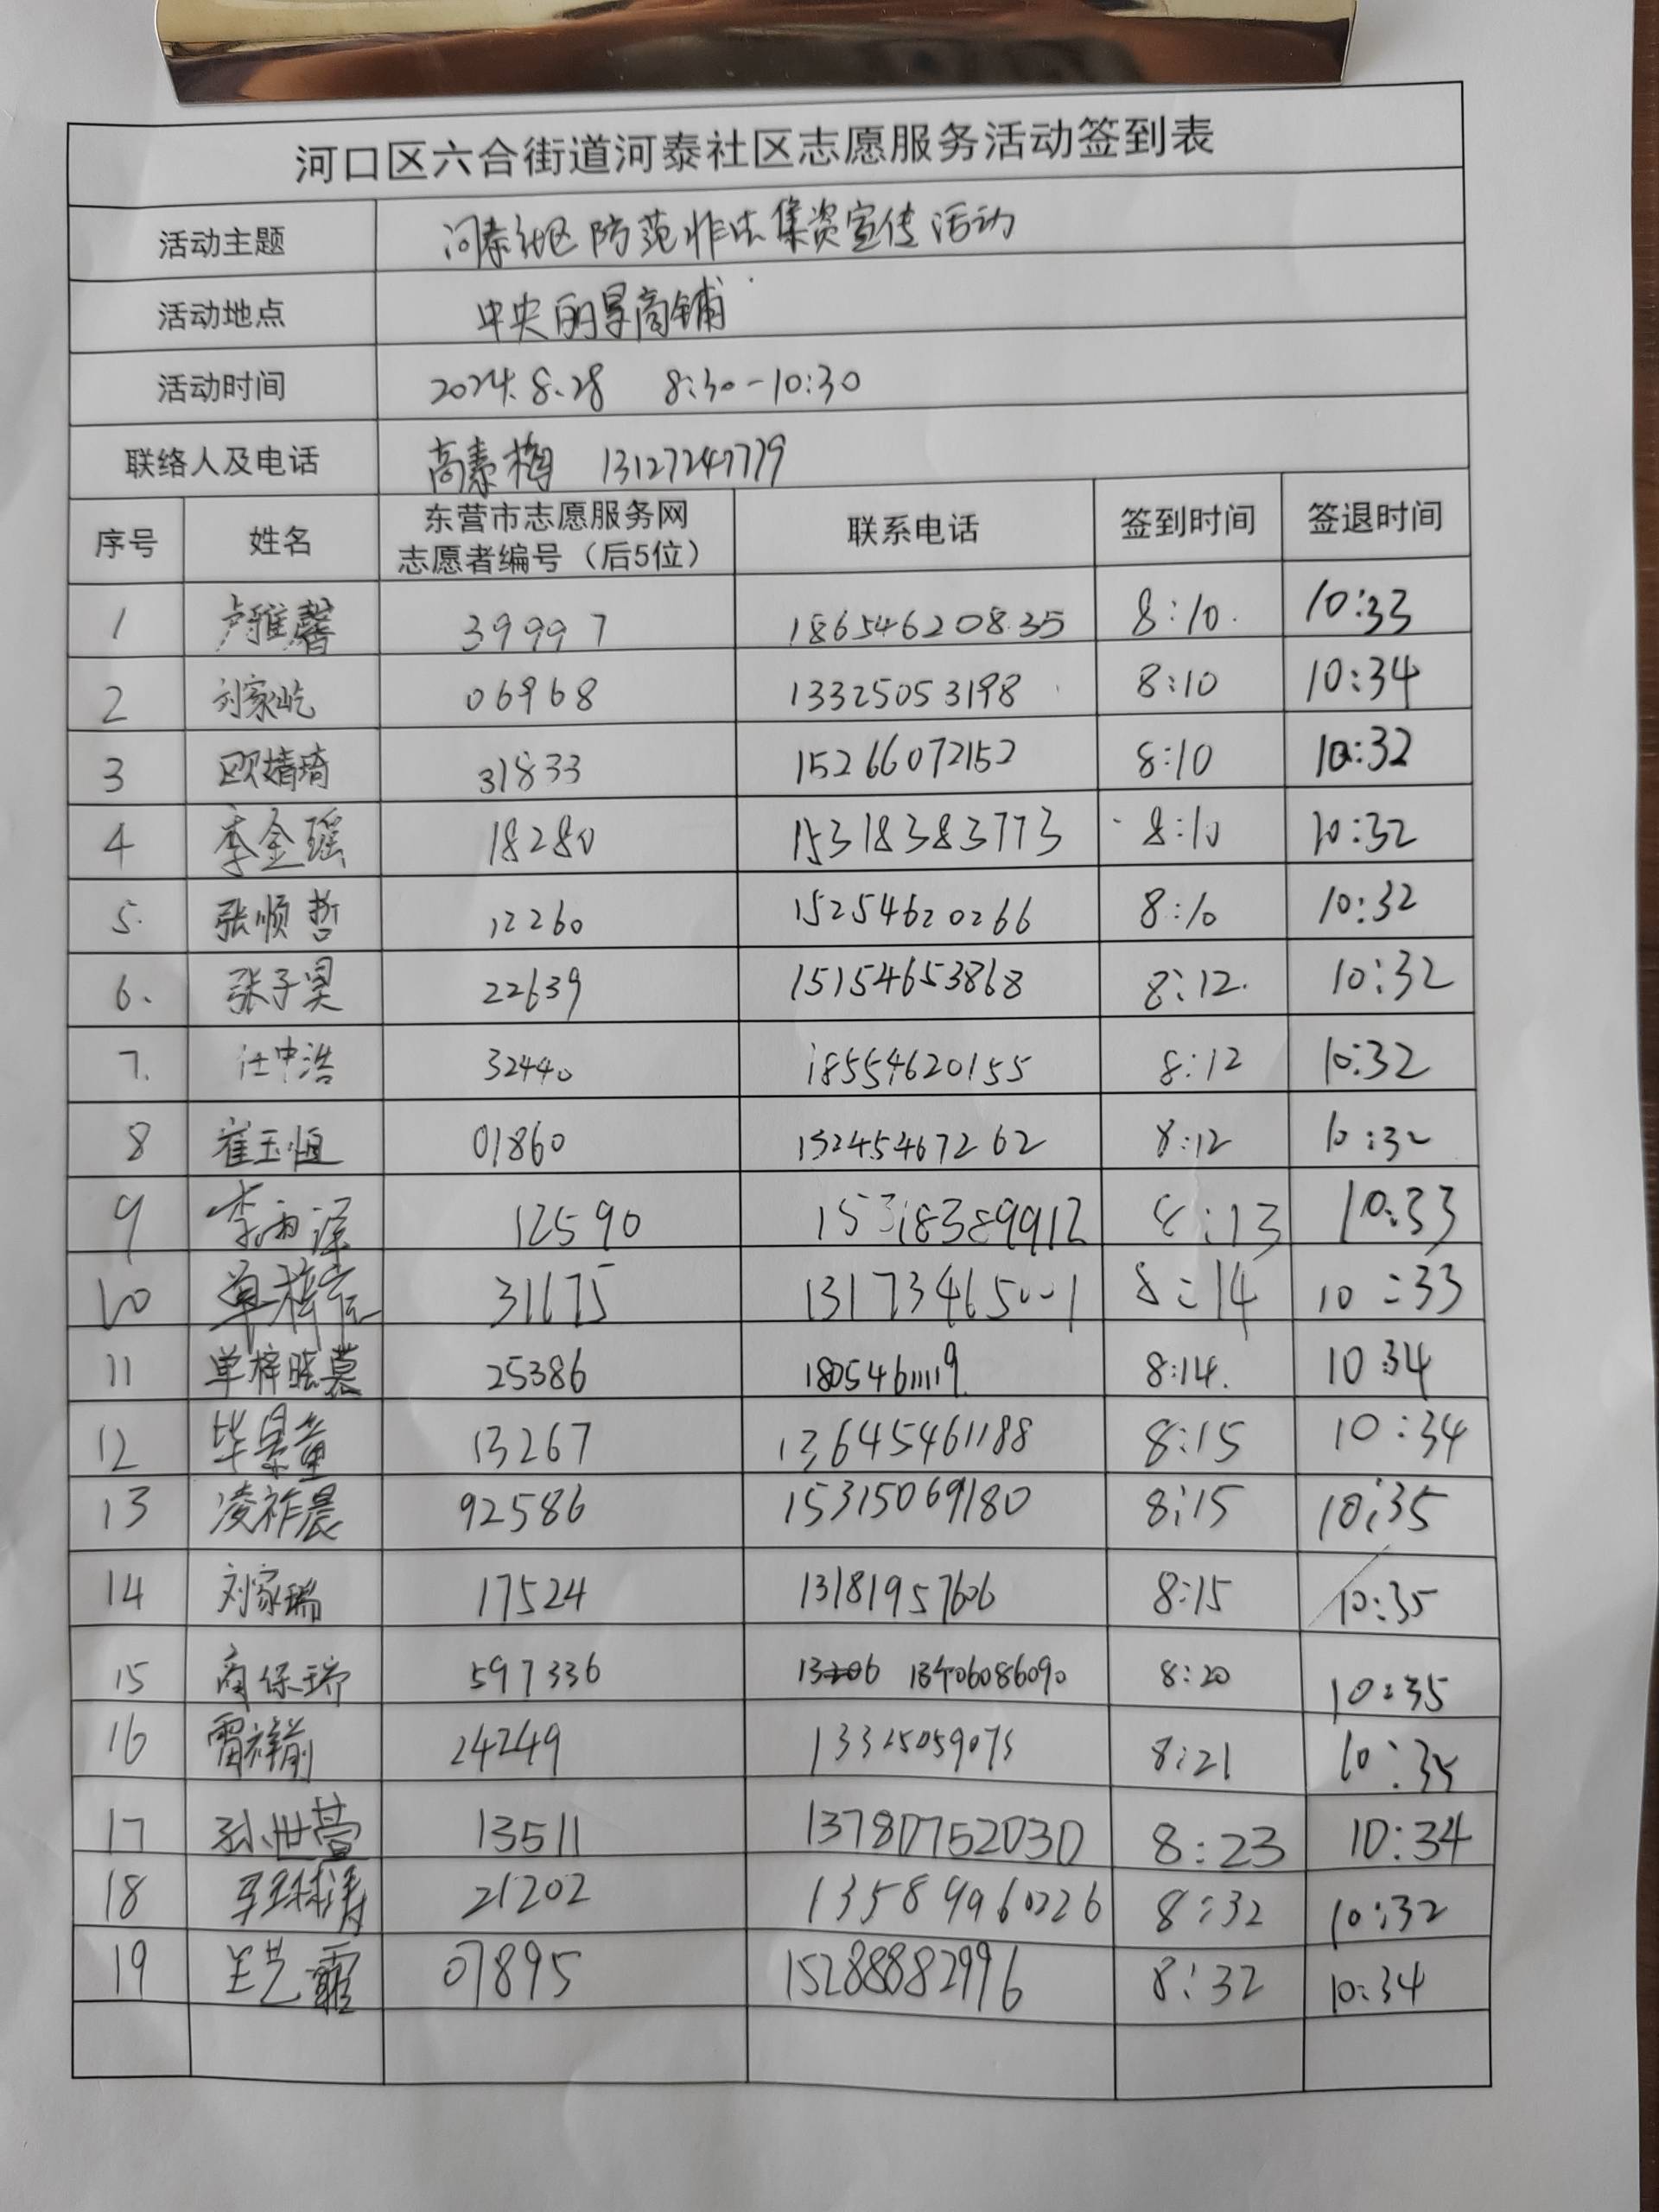 河口区六合街道河泰社区志愿服务活动签到表
活动主题 河泰社区防范非法集资宣传活动
活动地点 中央丽景商铺
活动时间 2024.8.28 8:30-10:30
联络人及电话 高素梅 13127247779
序号 姓名 东营市志愿服务网志愿者编号（后5位） 联系电话 签到时间 签退时间
1 卢雅馨 39997 18654620835 8:10. 10:33
2 刘家屹 06968 13325053198 8:10 10:34
3 欧婧琦 31833 15266072152 8:10 10:32
4 李金瑶 18280 15318383773 8:10 10:32
5. 张顺哲 12260 15254620266 8:10 10:32
6. 张子昊 22639 15154653868 8:12. 10:32
7. 任中浩 32440 18554620155 8:12 10:32
8 崔玉恒 01860 15245467262 8:12 10:32
9 李雨泽 12590 15318389912 8:13 10:33
10 单梓 31675 13173465001 8:14 10:33
11 单梓晗慕 25386 18054611119 8:14. 10:34
12 毕景童 13267 13645461188 8:15 10:34
13 凌祚晨 92586 15315069180 8:15 10:35
14 刘家瑞 17524 13181957606 8:15 10:35
15 商保 597336 13206 13406086090 8:20 10:35
16 雷祥 24249 13325059075 8:21 10:35
17 孙世萱 13511 13780752030 8:23 10:34
18 21202 13589960226 8:32 10:32
19 王艺霏 07895 15288882996 8:32 10:34